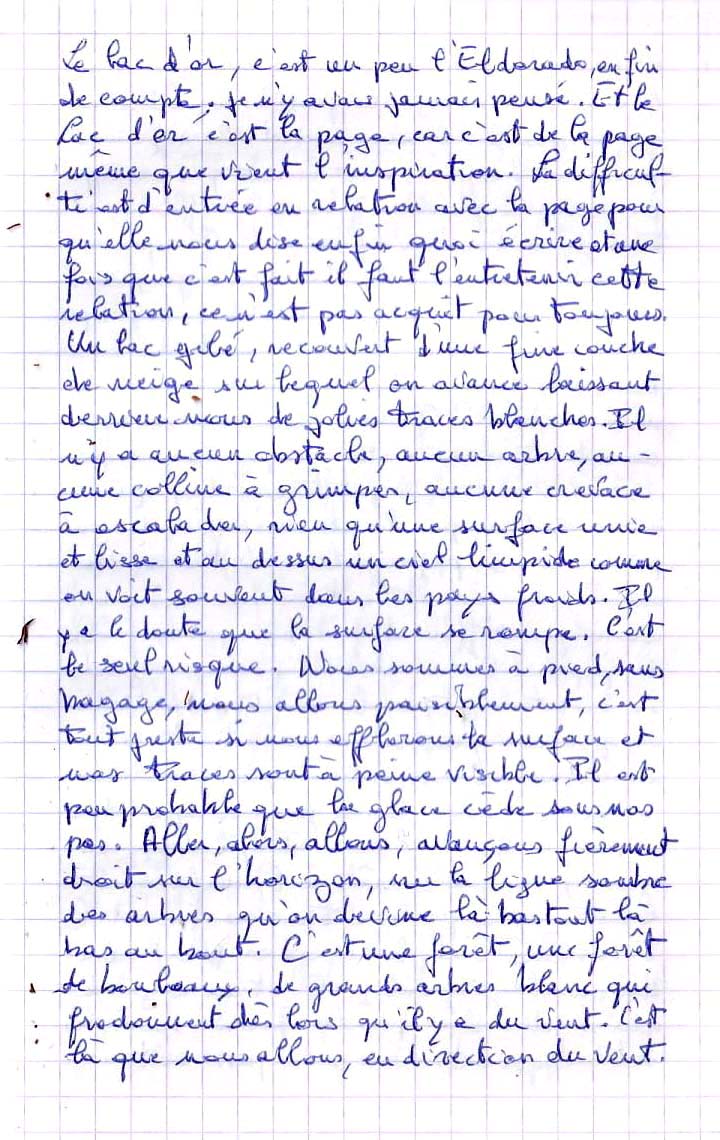 Le lac d'or, c'est un peu l'Eldorado, en fin
de compte, je n'y avais jamais pensé. Et le
Lac d'or c'est la page, car c'est de la page
même que vient l'inspiration. La difficul-
té est d'entrée en relation avec la page pour
qu'elle nous dise enfin quoi écrire et une
fois que c'est fait il faut l'entretenir cette
relation, ce n'est pas acquit pour toujours.
Un lac gelé, recouvert d'une fine couche
de neige sur lequel on avance laissant
derrière nous de jolies traces blanches. Il
n'y a aucun obstacle, aucun arbre, au-
cune colline à grimper, aucune crevace
à escalader, rien qu'une surface unie
et lisse et au dessus un ciel limpide comme
on voit souvent dans les pays froids. Il
y a le doute que la surface se rompe. C'est
le seul risque. Nous sommes à pied, sans
bagage, nous allons paisiblement, c'est
tout juste si nous effleurons la surface et
nos traces sont à peine visible. Il est
peu probable que la glace cède sous nos
pas. Aller, alors, allons, avançons fièrement
droit sur l'horizon, sur la ligne sombre
des arbres qu'on devine là bas tout là
bas au bout. C'est une forêt, une forêt
de bouleaux, de grands arbres blanc qui
frodonnent dès lors qu'il y a du vent. C'est
là que nous allons, en direction du vent.